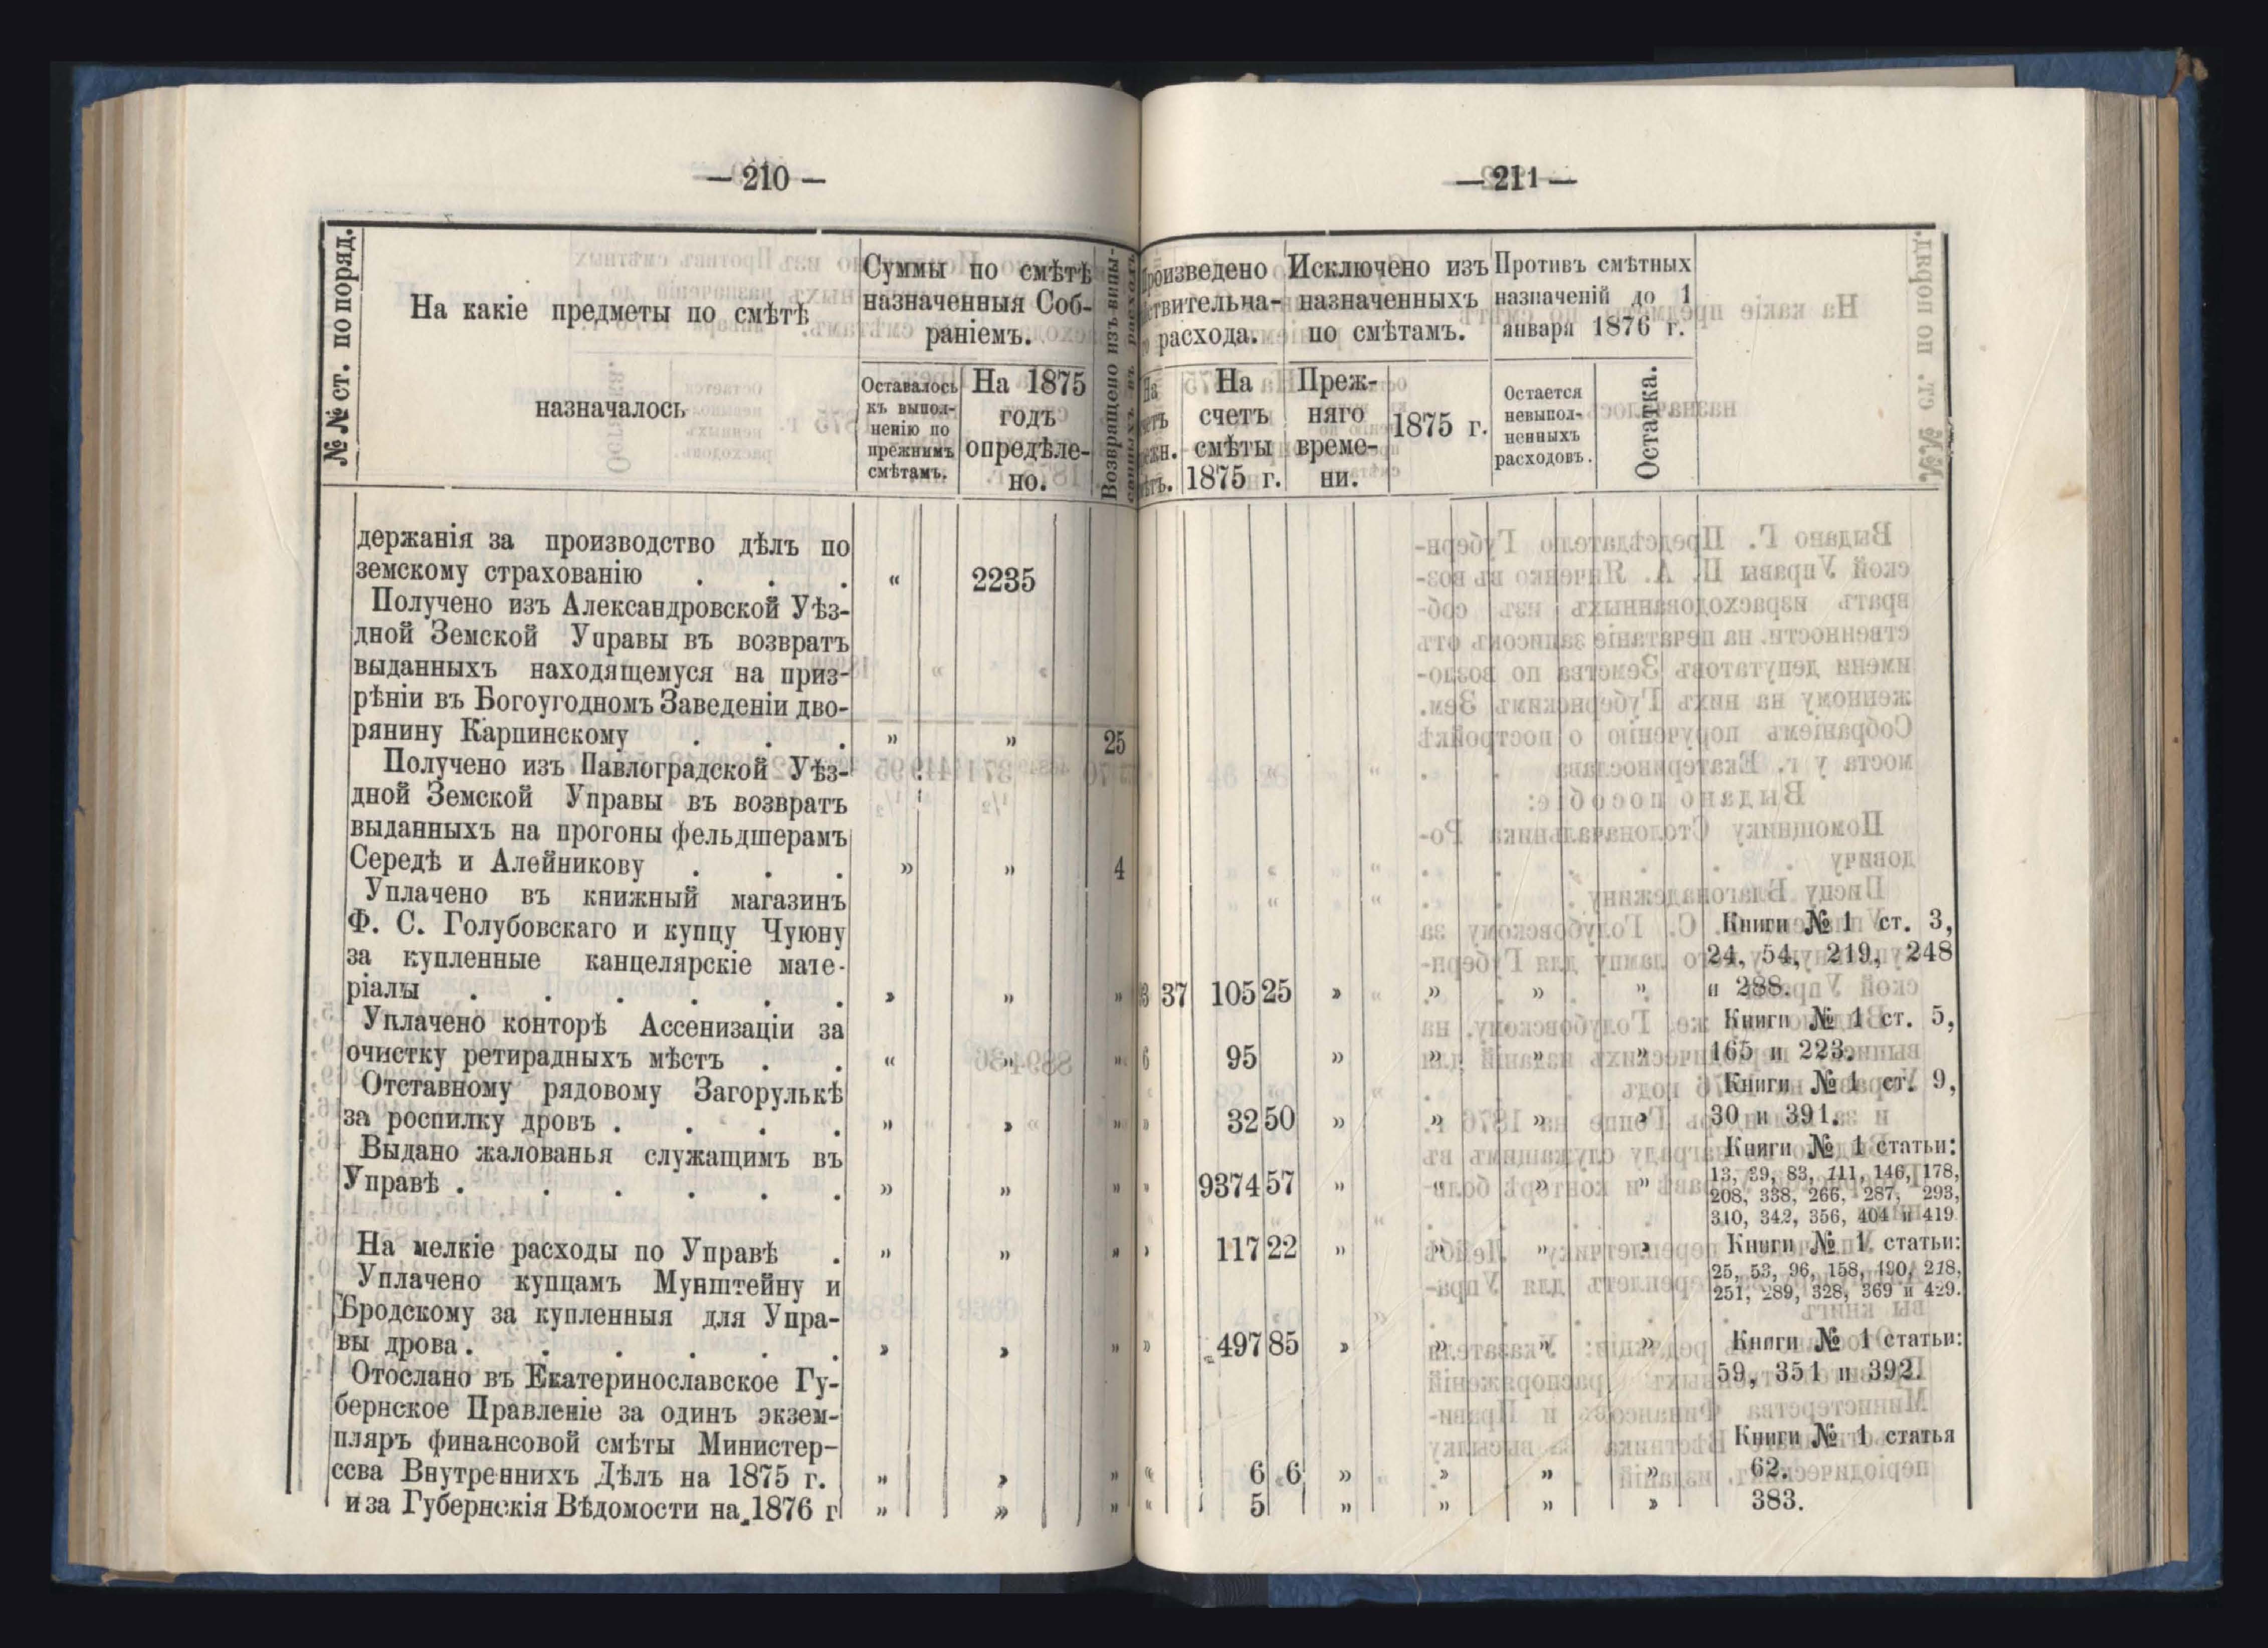 — 210 —
№№ ст. по поряд.
На какіе предметы по смѣтѣ
назначалось
Суммы по смѣтѣ
назначенныя Соб-
раніемъ.
Оставалось
къ выпол-
ненію по
прежнимъ
смѣтамъ.
На 1875
годъ
опредѣле-
но.
Возвращено изъ выпи-
держанія за производство дѣлъ по
земскому страхованію . . . « 2235
Получено изъ Александровской Уѣз-
дной Земской Управы въ возвратъ
выданныхъ находящемуся на приз-
рѣніи въ Богоугодномъ Заведеніи дво-
рянину Карпинскому . . . » » 25
Получено изъ Павлоградской Уѣз-
дной Земской Управы въ возвратъ
выданныхъ на прогоны фельдшерамъ
Середѣ и Алейникову . . . » » 4
Уплачено въ книжный магазинъ
Ф. С. Голубовскаго и купцу Чуюну
за купленные канцелярскіе мате-
ріалы . . . . . . » » »
Уплачено конторѣ Ассенизаціи за
очистку ретирадныхъ мѣстъ . . « » »
Отставному рядовому Загорулькѣ
за роспилку дровъ . . . . » » »
Выдано жалованья служащимъ въ
Управѣ . . . . . . » » »
На мелкіе расходы по Управѣ . » » »
Уплачено купцамъ Мунштейну и
Бродскому за купленныя для Упра-
вы дрова . . . . . . » » »
Отослано въ Екатеринославское Гу-
бернское Правленіе за одинъ экзем-
пляръ финансовой смѣты Министер-
ссва Внутреннихъ Дѣлъ на 1875 г. » » »
и за Губернскія Вѣдомости на 1876 г » » »
— 211 —
Произведено
ствительна-
расхода.
На
счетъ
смѣты
1875 г.
Исключено изъ
назначенныхъ
по смѣтамъ.
Преж-
няго
време-
ни.
1875 г.
Противъ смѣтныхъ
назначеній до 1
января 1876 г.
Остается
невыпол-
ненныхъ
расходовъ.
Остатка.
Книги № 1 ст. 3,
24, 54, 219, 248
3 37 105 25 » » » » и 288.
Книги № 1 ст. 5,
6 95 » » » » 165 и 223.
Книги № 1 ст. 9,
» 32 50 » » » » 30 и 391.
Книги № 1 статьи:
13, 39, 83, 111, 146, 178,
» 9374 57 » » » » 208, 338, 266, 287, 293,
310, 342, 356, 404 и 419
» 117 22 » » » » Книги № 1 статьи:
25, 53, 96, 158, 190, 218,
251, 289, 328, 369 и 429.
» 497 85 » » » » Книги № 1 статьи:
59, 351 и 392.
Книги № 1 статья
« 6 6 » » » » 62.
« 5 » » » » 383.